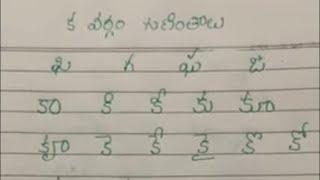 క వర్గం గుణింతాలు
ఖ గ ఘ ఙ
కా కి కీ కు కూ
కృ కె కే కై కొ కో